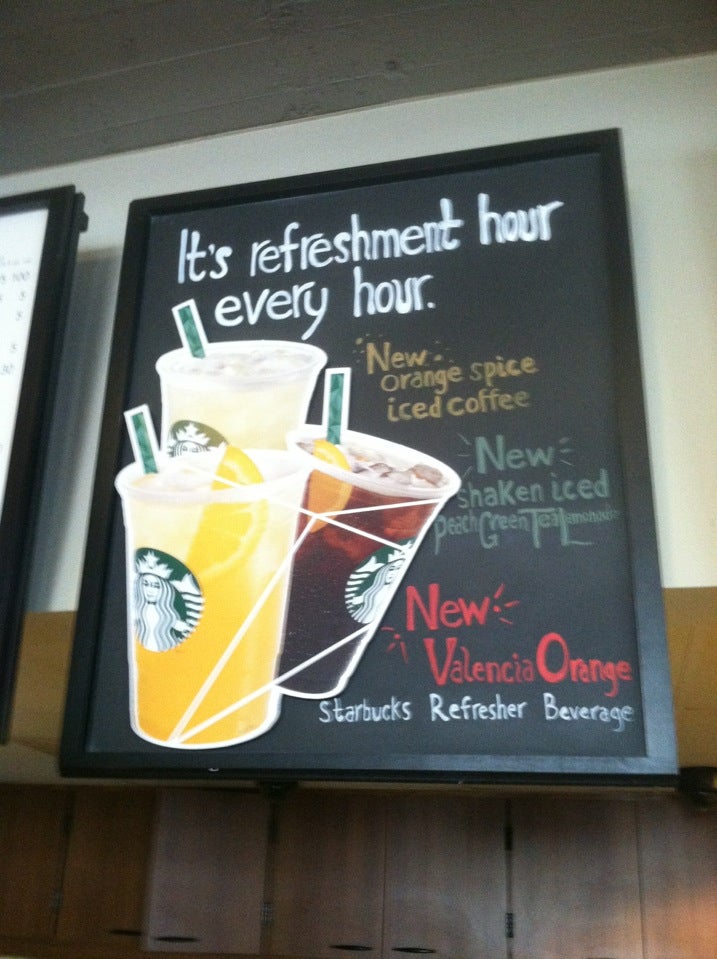 It's refreshment hour
every hour.
New
orange spice
iced coffee
New
shaken iced
peach Green Tea Lemonade
New
Valencia Orange
Starbucks Refresher Beverage